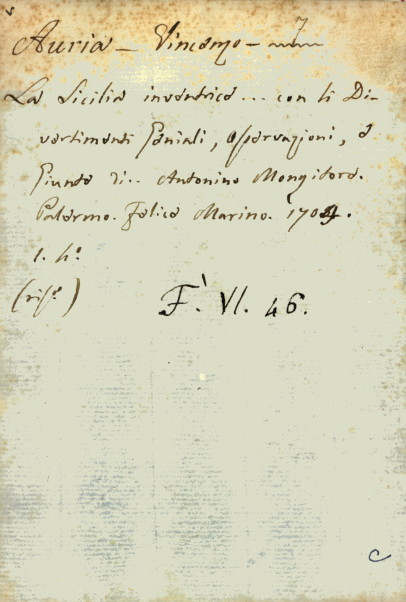 Auria - Vincenzo -
La Sicilia inventrice... con li Di-
vertimenti Geniali, osservazioni, e
Giunte di.. Antonino Mongitore.
Palermo. Felice Marino. 1704.
1. 4.º
(ris.º)
F. VI. 46.
C